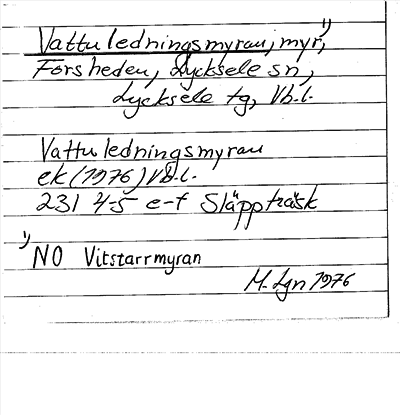 Vattuledningsmyran, myr, 1)
Forsheden, Lycksele sn,
Lycksele tg, Vb.l.
Vattuledningsmyran
ek (1976) Vb.l.
231 4-5 e-f Släppträsk
1) NO Vitstarrmyran
M. Lgn 1976